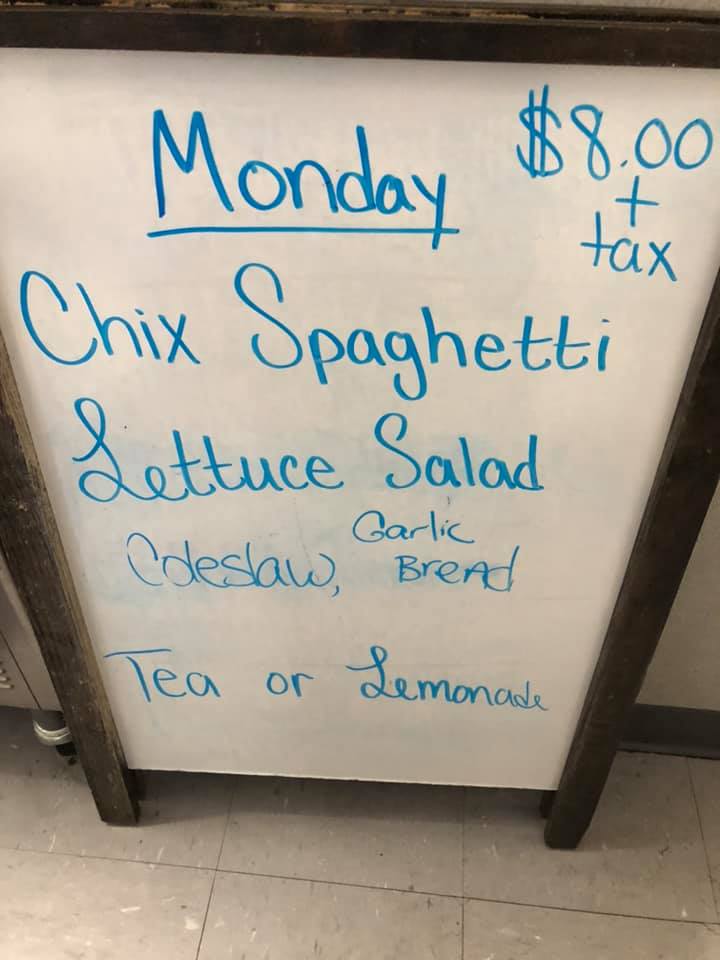 Monday
$8.00
+
tax
Chix Spaghetti
Lettuce Salad
Coleslaw, Garlic
Bread
Tea or Lemonade